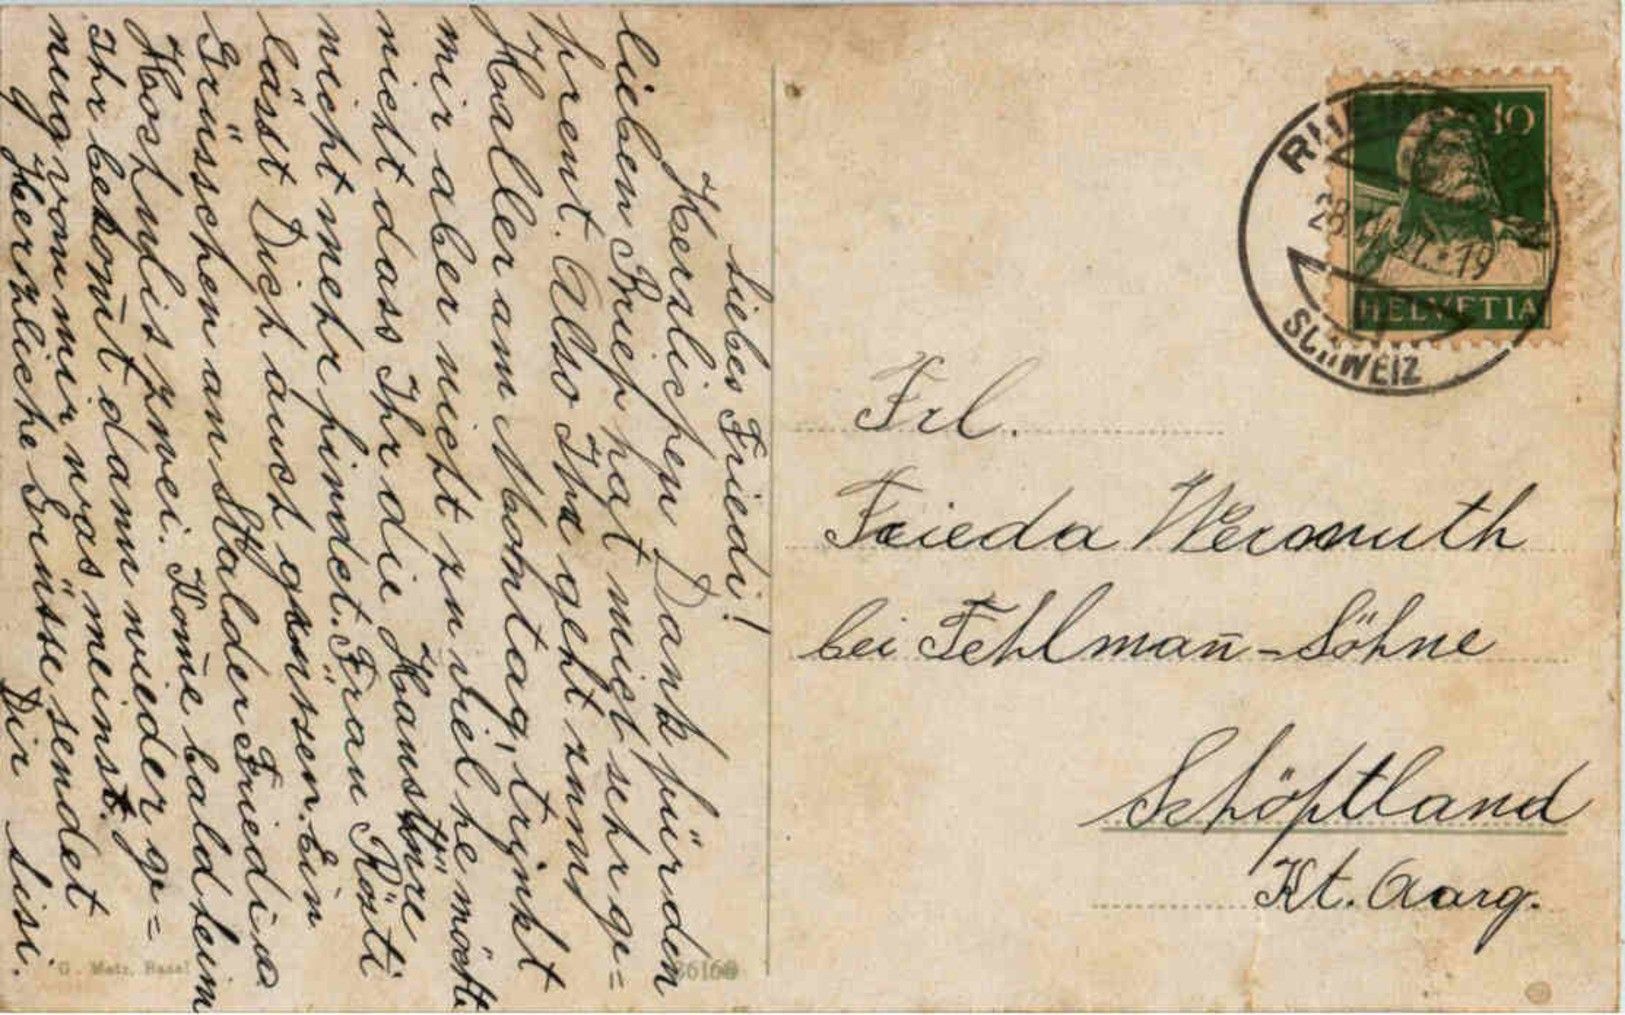 Liebes Friedi!
Herzlichen Dank für den
lieben Brief hat mich sehr ge=
freut. Also Ihr geht zum
Haller am Montag, trinkt
mir aber nicht zu viel he möchte
nicht dass Ihr die Haustüre
nicht mehr findet. Frau Rösti
lässt Dich auch grüssen. Ein
Grüsschen an Stalder Frieda
Hoschulis zwei. Kom̄e bald heim
Ihr bekom̄t dann wieder ge=
nug von mir was meinst.
Herzliche Grüsse sendet
Dir Lisi.
G. Metz, Basel
10
28. 21.-19
SCHWEIZ
HELVETIA
Frl.
Frieda Wermuth
bei Fehlman̄-Söhne
Schöftland
Kt. Aarg.